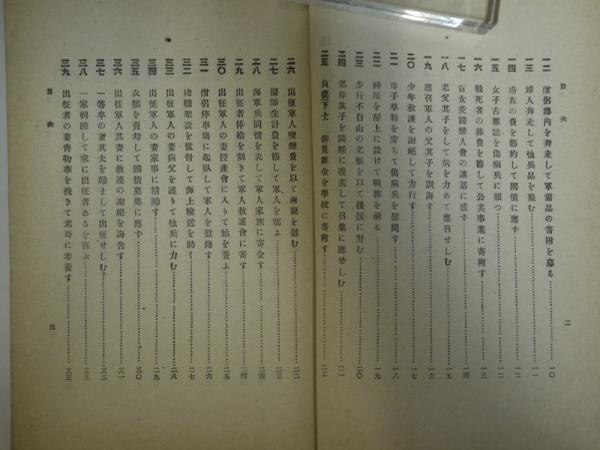 目次
一二 僧侶藤內を奔走して軍需品の寄附を募る 一〇
一三 婦人奔走して恤兵品を募む
一四 浴衣の費を節約して國債に應ず
一五 女子古雜誌を傷病兵に頒つ
一六 戰死者の葬費を節して公共事業に寄附す 一三
一七 盲女愛國婦人會の講話に感ず 一四
一八 老父其子をして病を力めて應召せしむ 一五
一九 應召軍人の父其子を訓誨す 一六
二〇 少年救護を謝絕して力行す 一七
二一 母子草鞋を穿ちて傷病兵を慰問す 一八
二二 神壇を屋上に設けて戰勝を祈る 一九
二三 步行不自由の老軀を以て後援に努む 二〇
二四 老母其子を隣縣に搜索して召集に應ぜしむ 二一
二五 負傷下士 御見舞金を學校に寄附す 二二
二
目次
二六 出征軍人喫煙費を以て兩親を慰む 二二
二七 醫師生計費を節して軍人を犒ふ 二三
二八 海軍兵同情を表して軍人家族に寄金す 二四
二九 出征者俸給を割きて軍人救護會に寄す 二四
三〇 出征軍人の妻授產會に入りて姑を養ふ 二五
三一 僧侶停車場に起臥して軍人を慰藉す 二六
三二 棧橋架設を監督して海上輸送を助く 二七
三三 出征軍人の妻病父を護りて恤兵に力む 二八
三四 出征軍人の妻家事に精勵す 二九
三五 衣類を賣却して國債募集に應ず 三〇
三六 出征軍人其妻に救護の謝絕を誨告す 三一
三七 一等卒の妻其夫を勵まして出征せしむ 三二
三八 一家輯睦して家に出征者あるを喜ぶ 三三
三九 出征者の妻青物車を挽きて老母に孝養す 三三
三